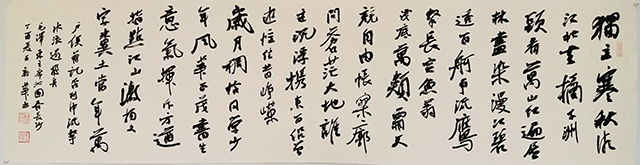 獨立寒秋湘
江北去橘子洲
頭看萬山紅遍層
林盡染漫江碧
透百舸爭流鷹
擊長空魚翔
淺底萬類霜天
競自由悵寥廓
問蒼茫大地誰
主沉浮携來百侣曾
遊憶往昔崢嶸
歲月稠恰同學少
年風華正茂書生
意氣揮斥方遒
指點江山激揚文
字糞土當年萬
户侯曾記否到中流擊
水浪遏飛舟
毛澤東主席沁園春長沙
丁酉夏